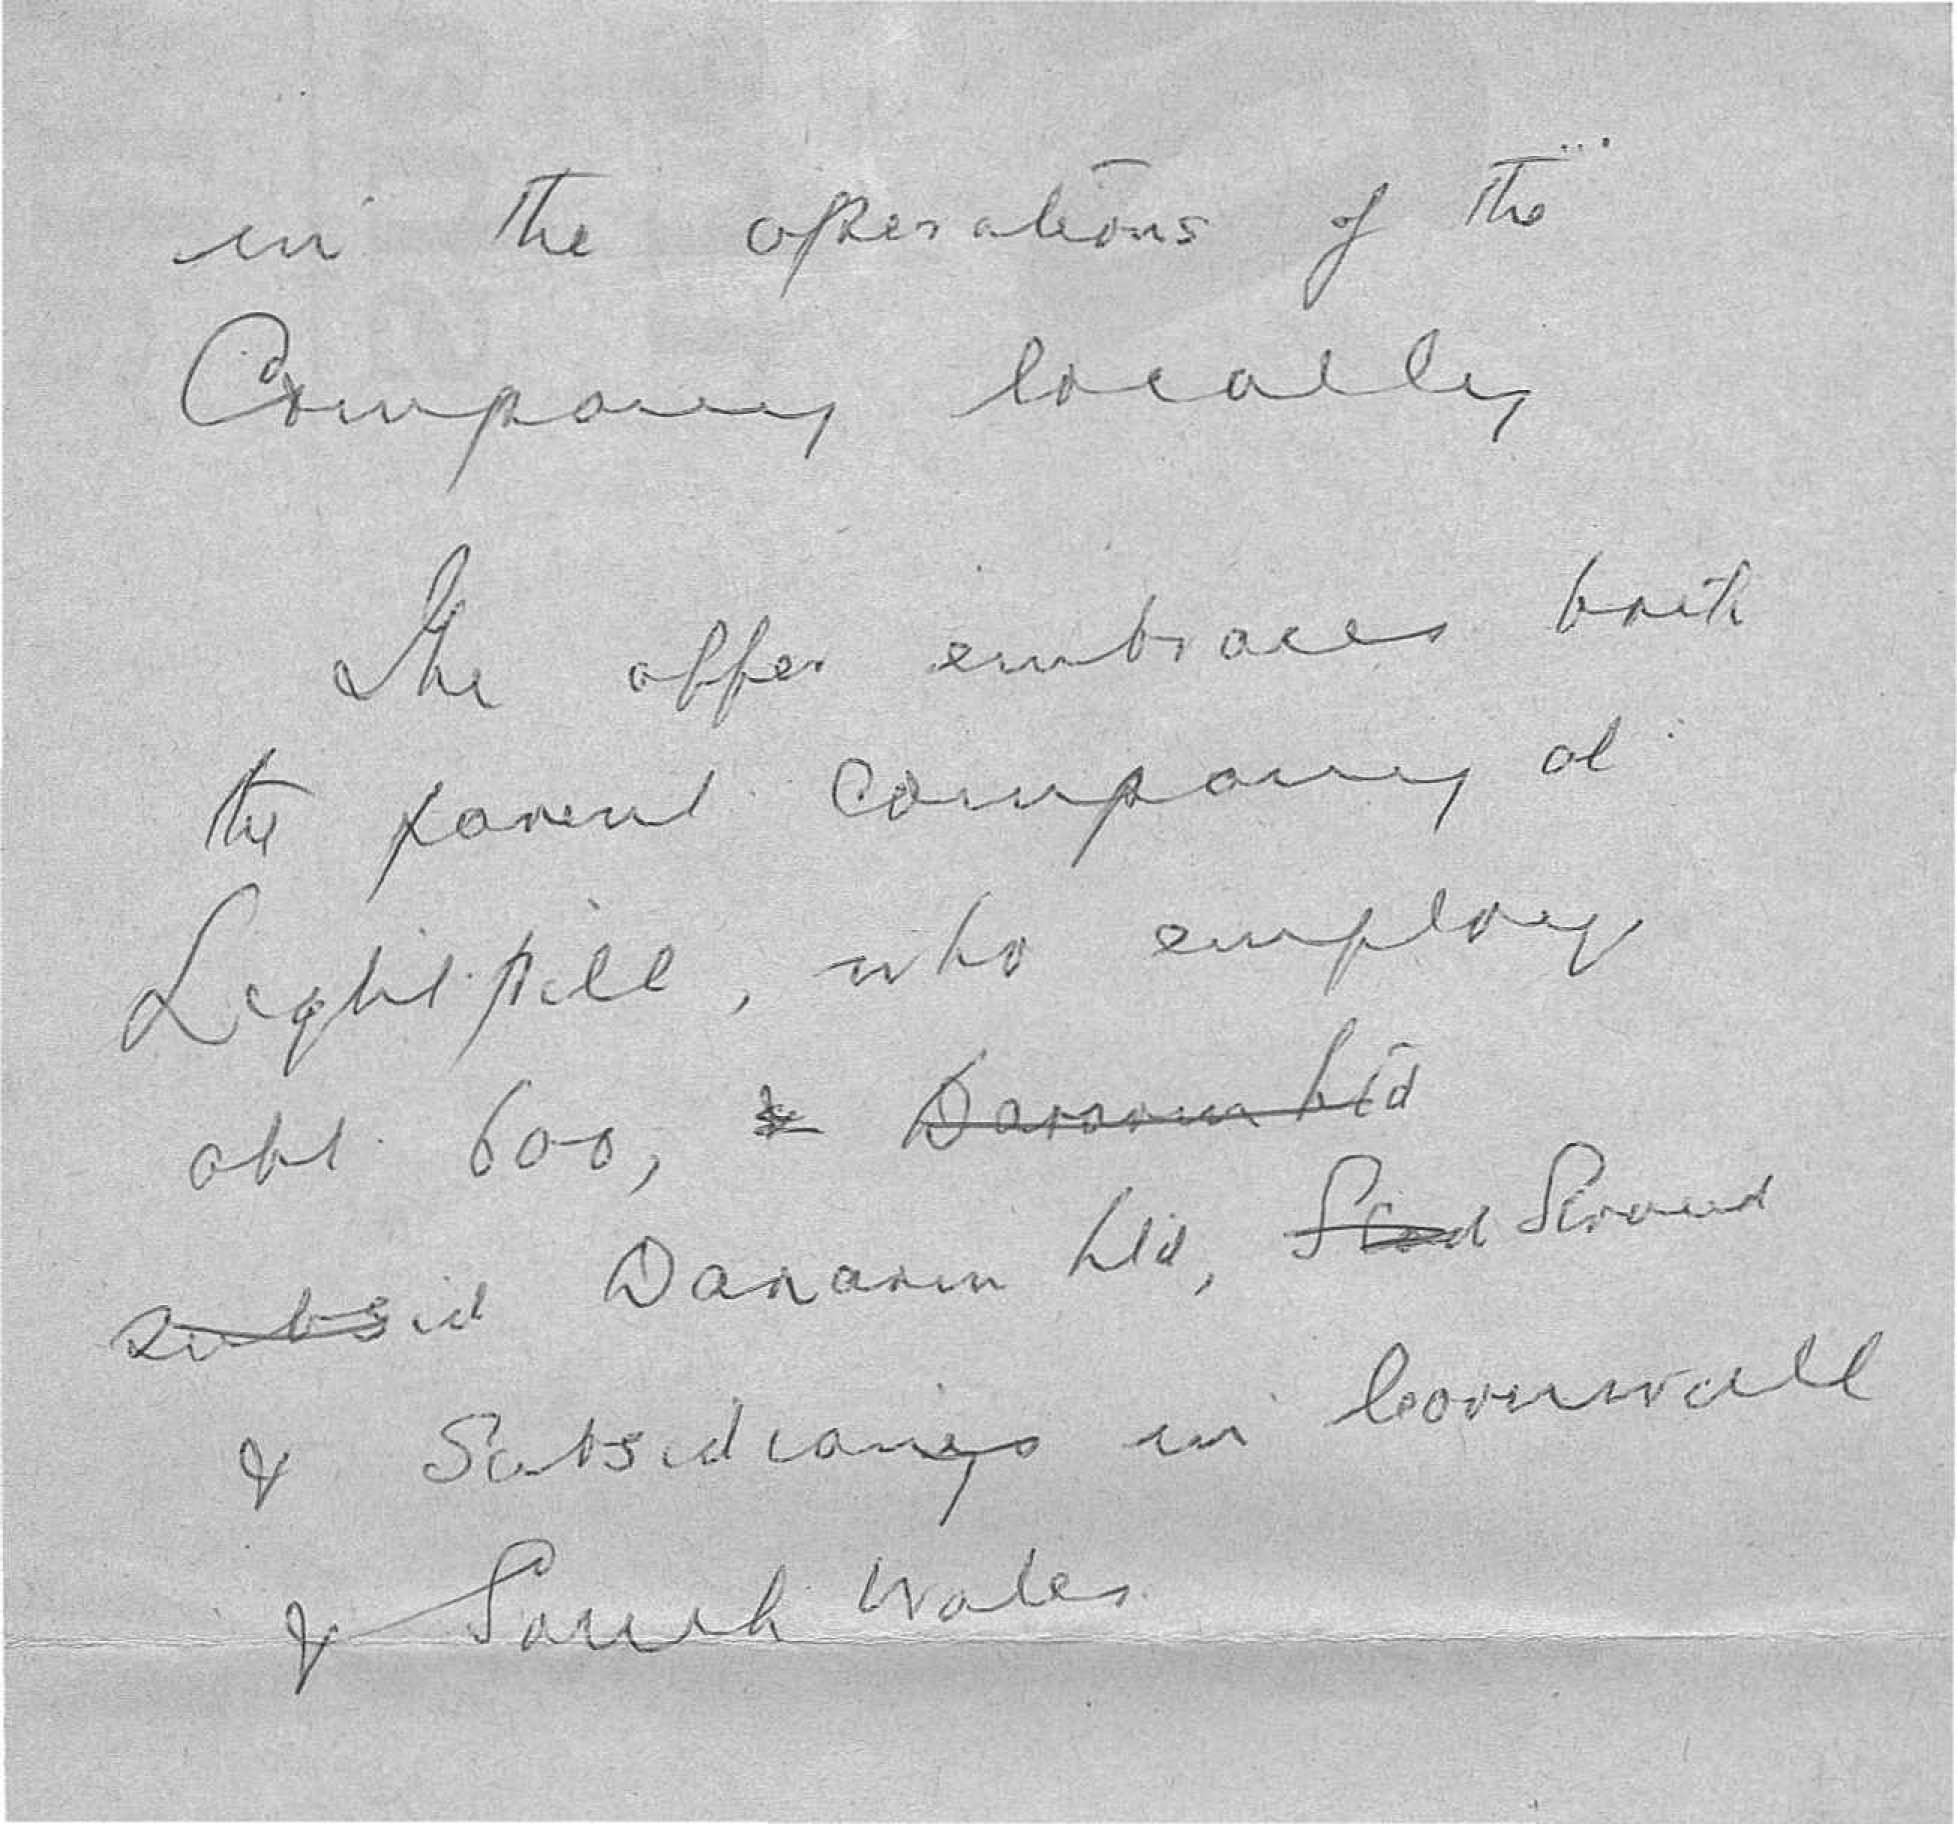 in the operations of the
Company locally
The offer embraces both
the parent Company at
Lightpill, who employ
abt 600, & Danarm Ltd
subsid Danarm Ltd, Stod Stroud
& Subsidiarys in Cornwall
& South Wales